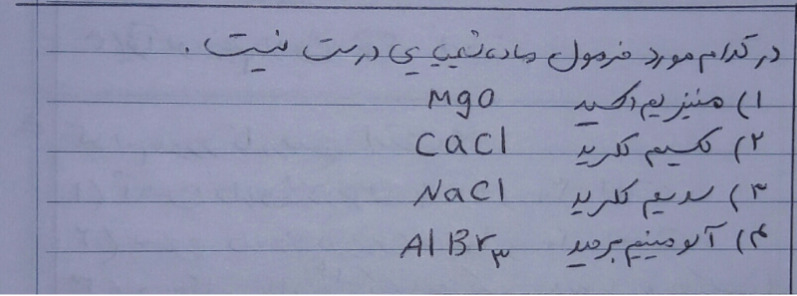 در کدام مورد فرمول ماده شیمیایی درست نیست .
۱) منیزیم اکسید MgO
۲) کلسیم کلرید CaCl
۳) سدیم کلرید NaCl
۴) آلومینیم برمید AlBr₃